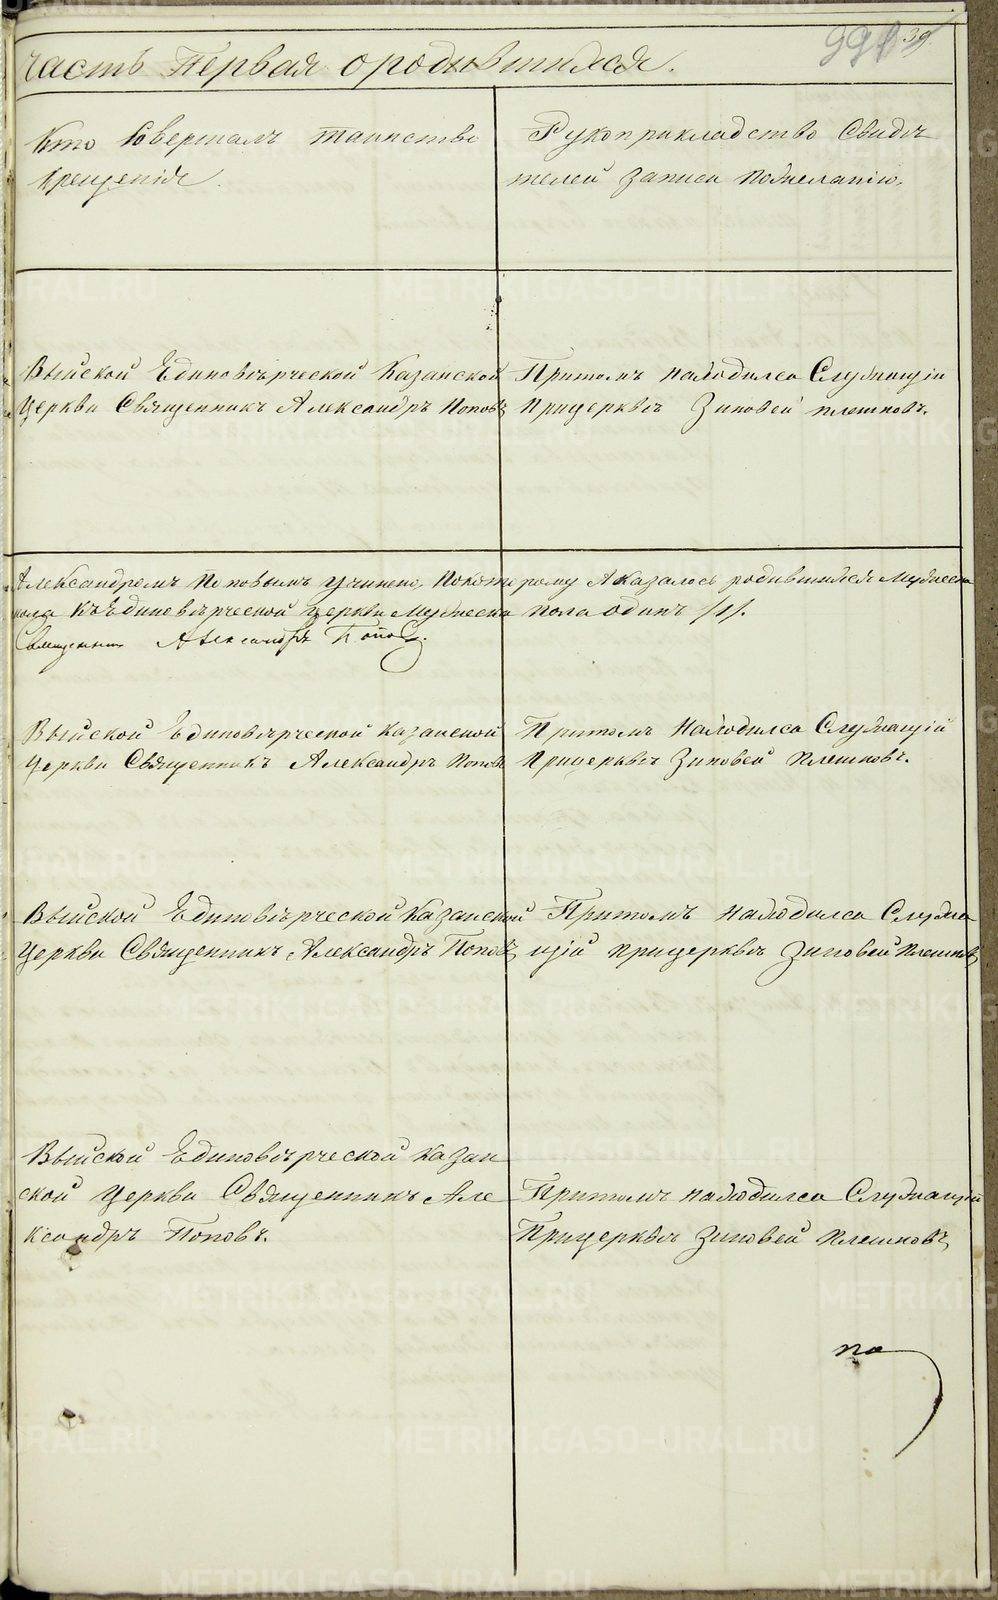 Часть Первая о родившихся.
39
Кто Совершалъ таинство
крещенія.
Рукоприкладство Свидѣ
телей записи пожеланію.
Выйской Единовѣрческой Казанской
Церкви Священникъ Александръ Поповъ
Притомъ находился Служащій
Прицерквѣ Зиновей плешковъ.
Александромъ Поповымъ учинено, Покоторому Аказалось родившихся Мужеска
пола КъЕдиновѣрческой церкви Мужеска пола одинъ /1/.
Священникъ Александръ Поповъ.
Выйской Единовѣрческой казанской
Церкви Священникъ Александръ Поповъ
Притомъ Находился Служащій
Прицерквѣ Зиновей Плешковъ.
Выйской Единовѣрческой Казанской
Церкви Священникъ Александръ Поповъ
Притомъ находился Служа
щій прицерквѣ Зиновей Плешковъ
Выйской Единовѣрческой казан
ской Церкви Священникъ Але
ксандръ Поповъ.
Притомъ находился Служащій
Прицерквѣ Зиновей Плешковъ
по
METRIKI.GASO-URAL.RU